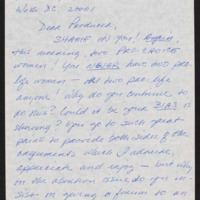 Wash DC. 20001
Dear Producer,
SHAME on you! Again
this morning, two PRO-CHOICE
women! You NEVER have two pro-
life women — or two pro-life
anyone! Why do you continue to
do this? Could it be your BIAS is
showing? You go to such great
pains to provide both sides of the
arguments which I admire,
appreciate and enjoy — but why
in the abortion issue do you in-
sist on giving a forum to an